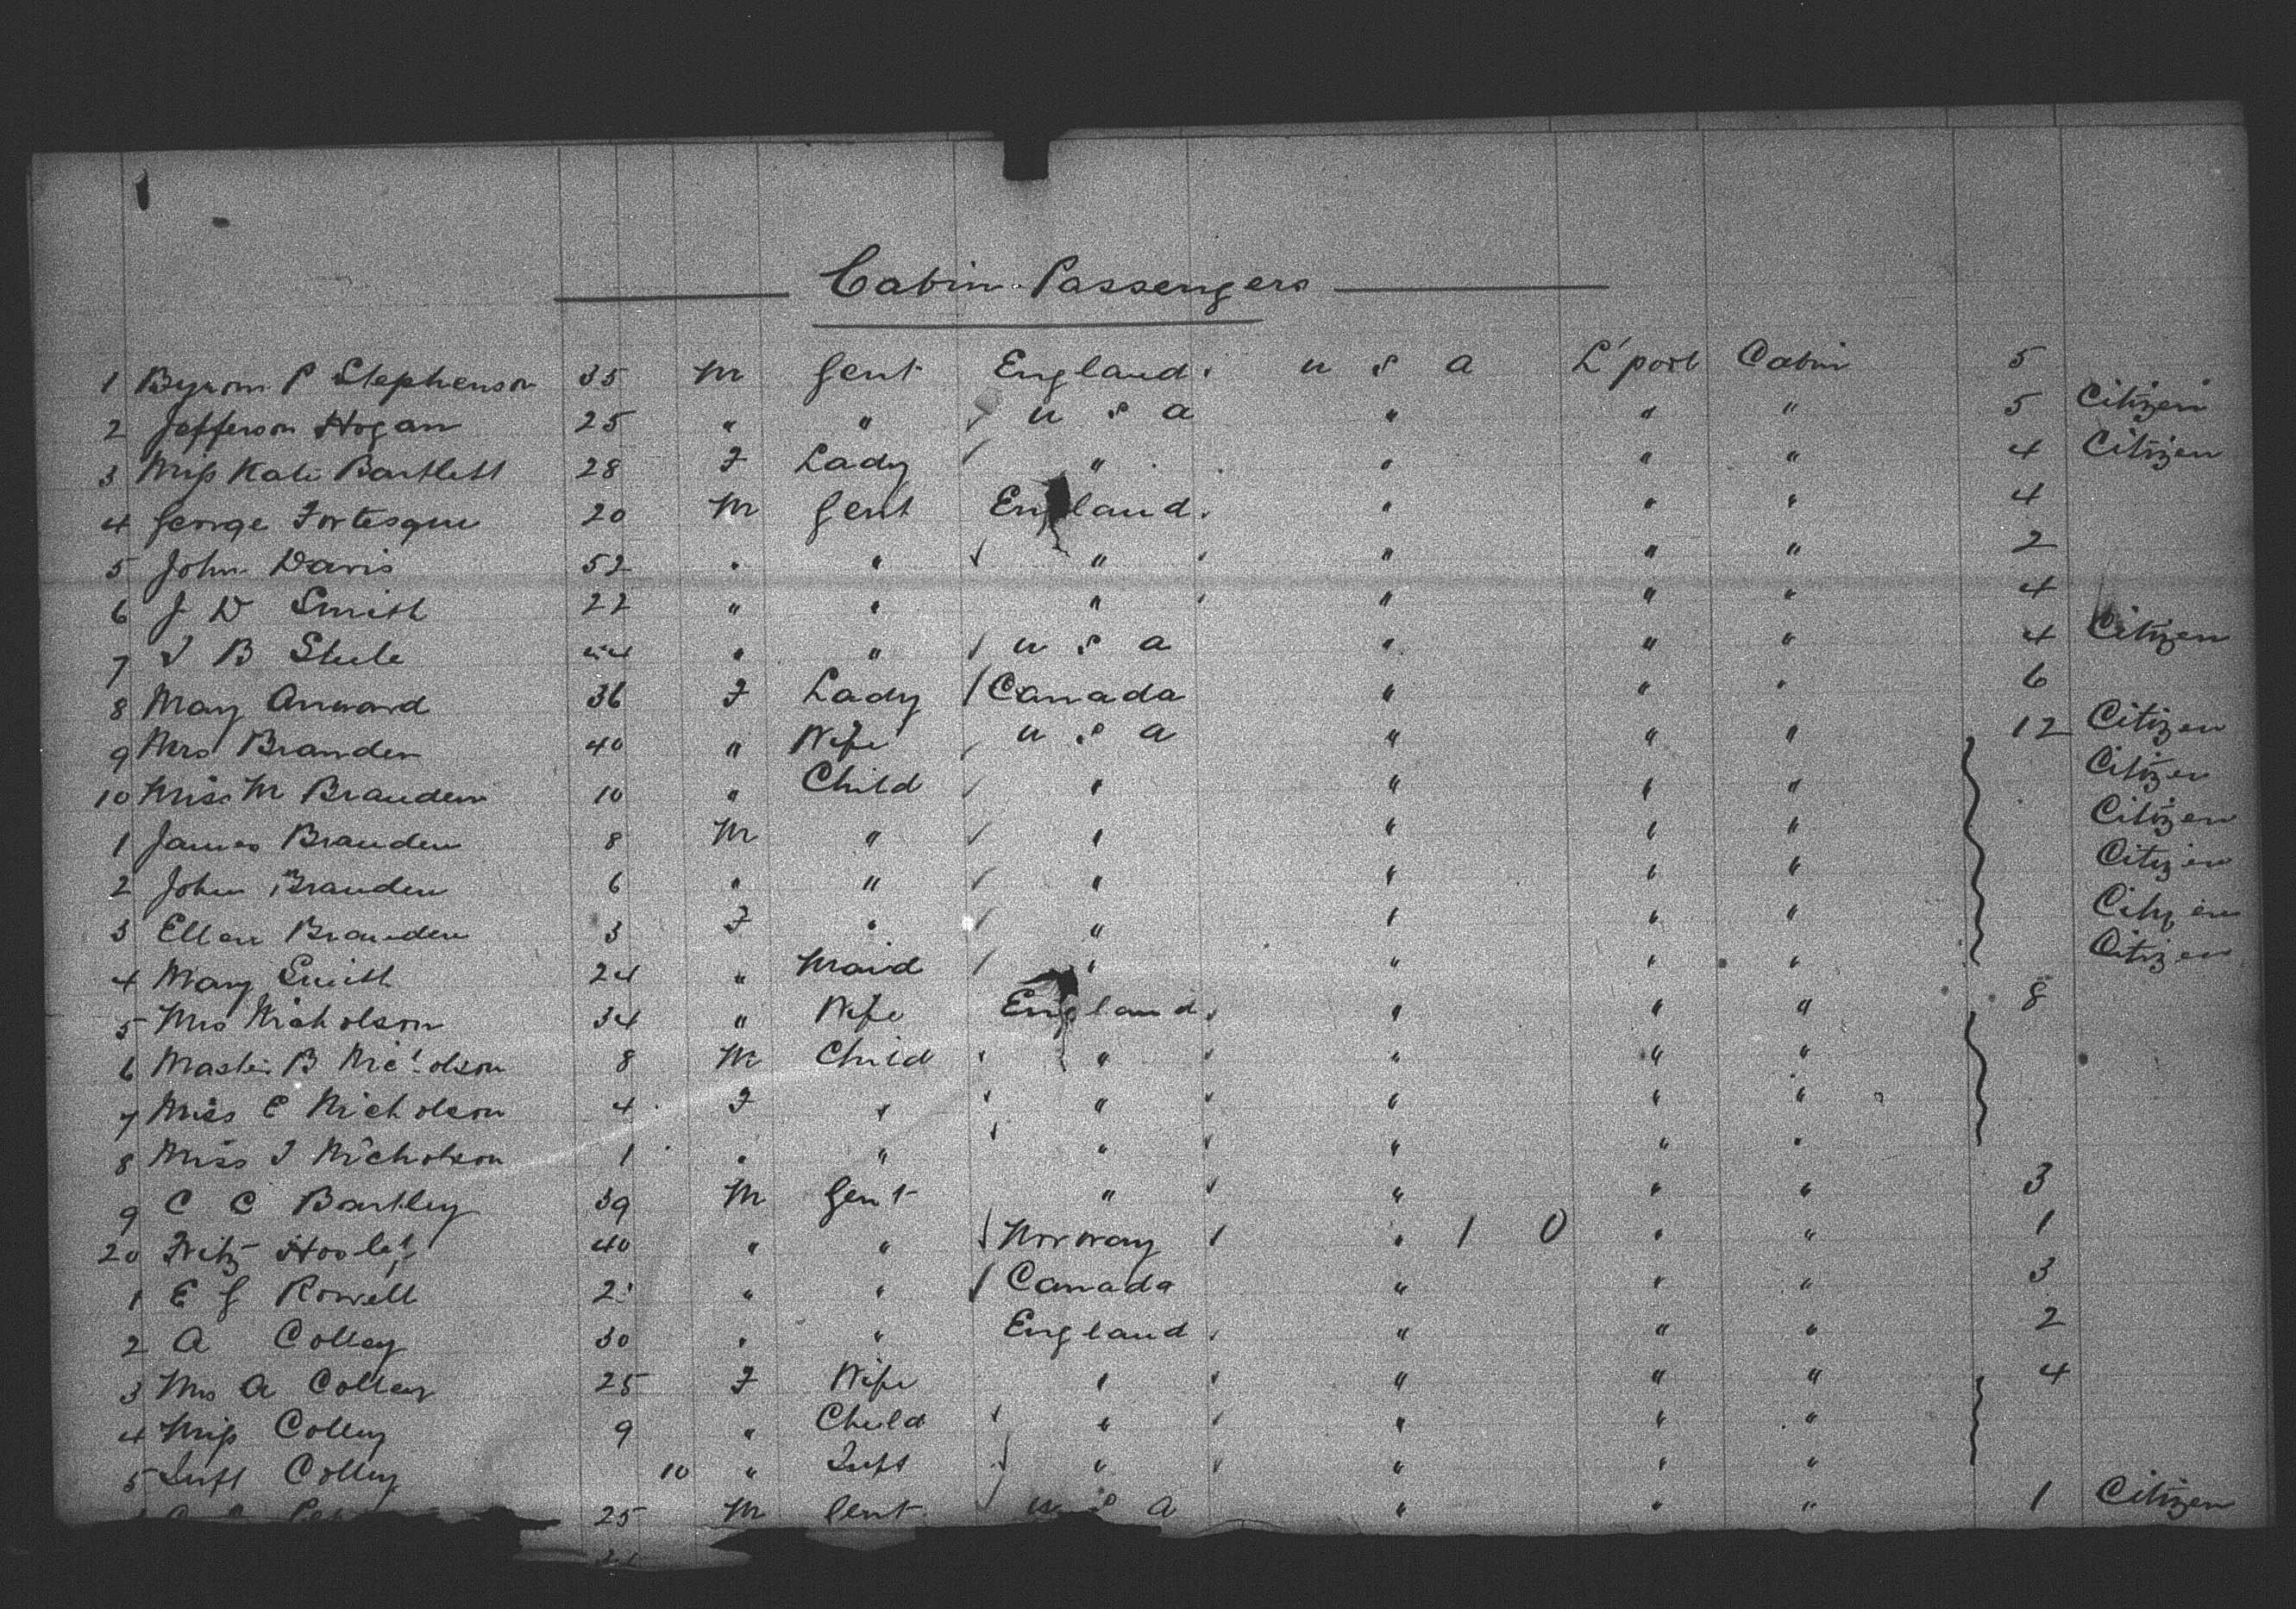 Cabin Passengers
1 Byrom P Stephenson 35 M Gent England U S A L'pool Cabin 5
2 Jefferson Hogan 25 " " U S A " " " 5 Citizen
3 Miss Kate Bartlett 28 F Lady " " " " 4 Citizen
4 George Fortesque 20 M Gent England " " " 4
5 John Davis 52 " " " " " " 2
6 J D Smith 22 " " " " " " 4
7 J B Steele " " U S A " " " 4 Citizen
8 May 36 F Lady Canada " " " 6
9 Mrs Branden 40 " Wife U S A " " " 12 Citizen
10 Miss M Branden 10 " Child " " " " Citizen
1 James Branden 8 M " " " " " Citizen
2 John Branden 6 " " " " " " Citizen
3 Ellen Branden 3 F " " " " " Citizen
4 Mary Smith 24 " Maid " " " " Citizen
5 Mrs Nicholson 34 " Wife England " " " 8
6 Master B Nicholson 8 M Child " " " "
7 Miss E Nicholson 4 F " " " " "
8 Miss I Nicholson 1 " " " " " "
9 C C Bartley 39 M Gent " " " " 3
20 Fritz 40 " " Norway " 1 0 " " 1
1 E G Rowell " " Canada " " " 3
2 A Colley 30 " " England " " " 2
3 Mrs A Colley 25 F Wife " " " " 4
4 Miss Colley 9 " Child " " " "
5 Inft Colley 10 " Inft " " " "
25 M Gent U S A " " " 1 Citizen